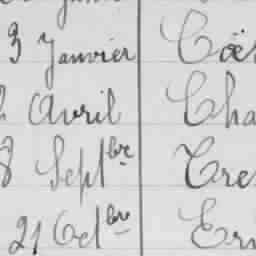 3 Janvier Coës
Avril Cha
8 Septbre Cre
21 Octbre Er